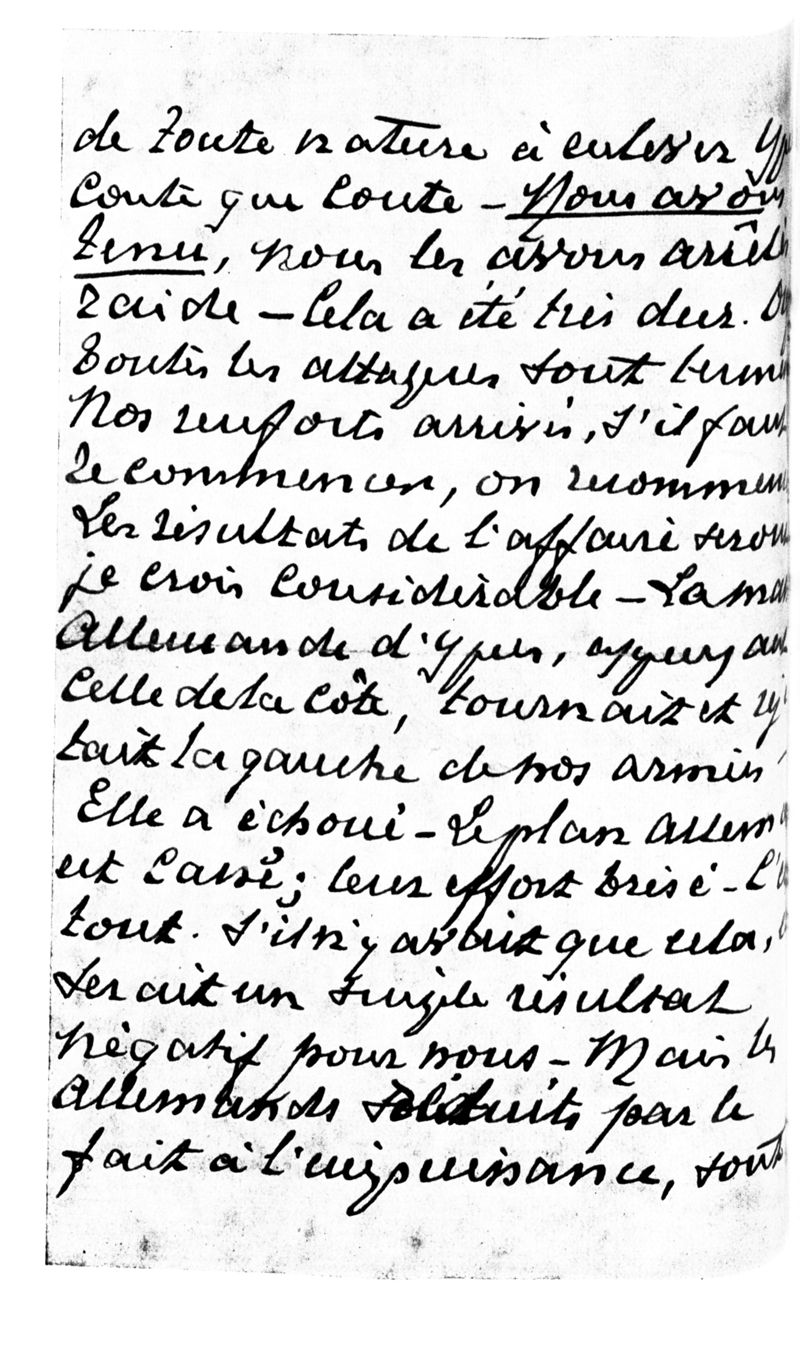 de toute nature à enlever Yp
coute que coute – Nous avons
tenu, nous les avons arrêtés
raide – Cela a été très dur.
toutes les attaques sont termi
Nos renforts arrivés, s'il faut
recommencer, on recommen
Les résultats de l'affaire seron
je crois considérable – La ma
Allemande d'Ypres, appuyant
celle de la côte, tournait et rej
tait la gauche de nos armées
Elle a échoué – Le plan allem
est cassé; leur effort brisé – C'
tout. S'il n'y avait que cela,
serait un simple résultat
négatif pour nous – Mais les
Allemands réduits par le
fait à l'impuissance, sont